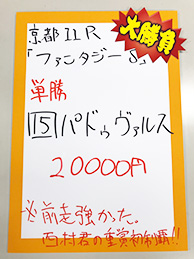 大勝負
京都11R
「ファンタジーS」
単勝
5 パドゥヴァルス
20000円
※前走強かった。
西村君の重賞初制覇!!